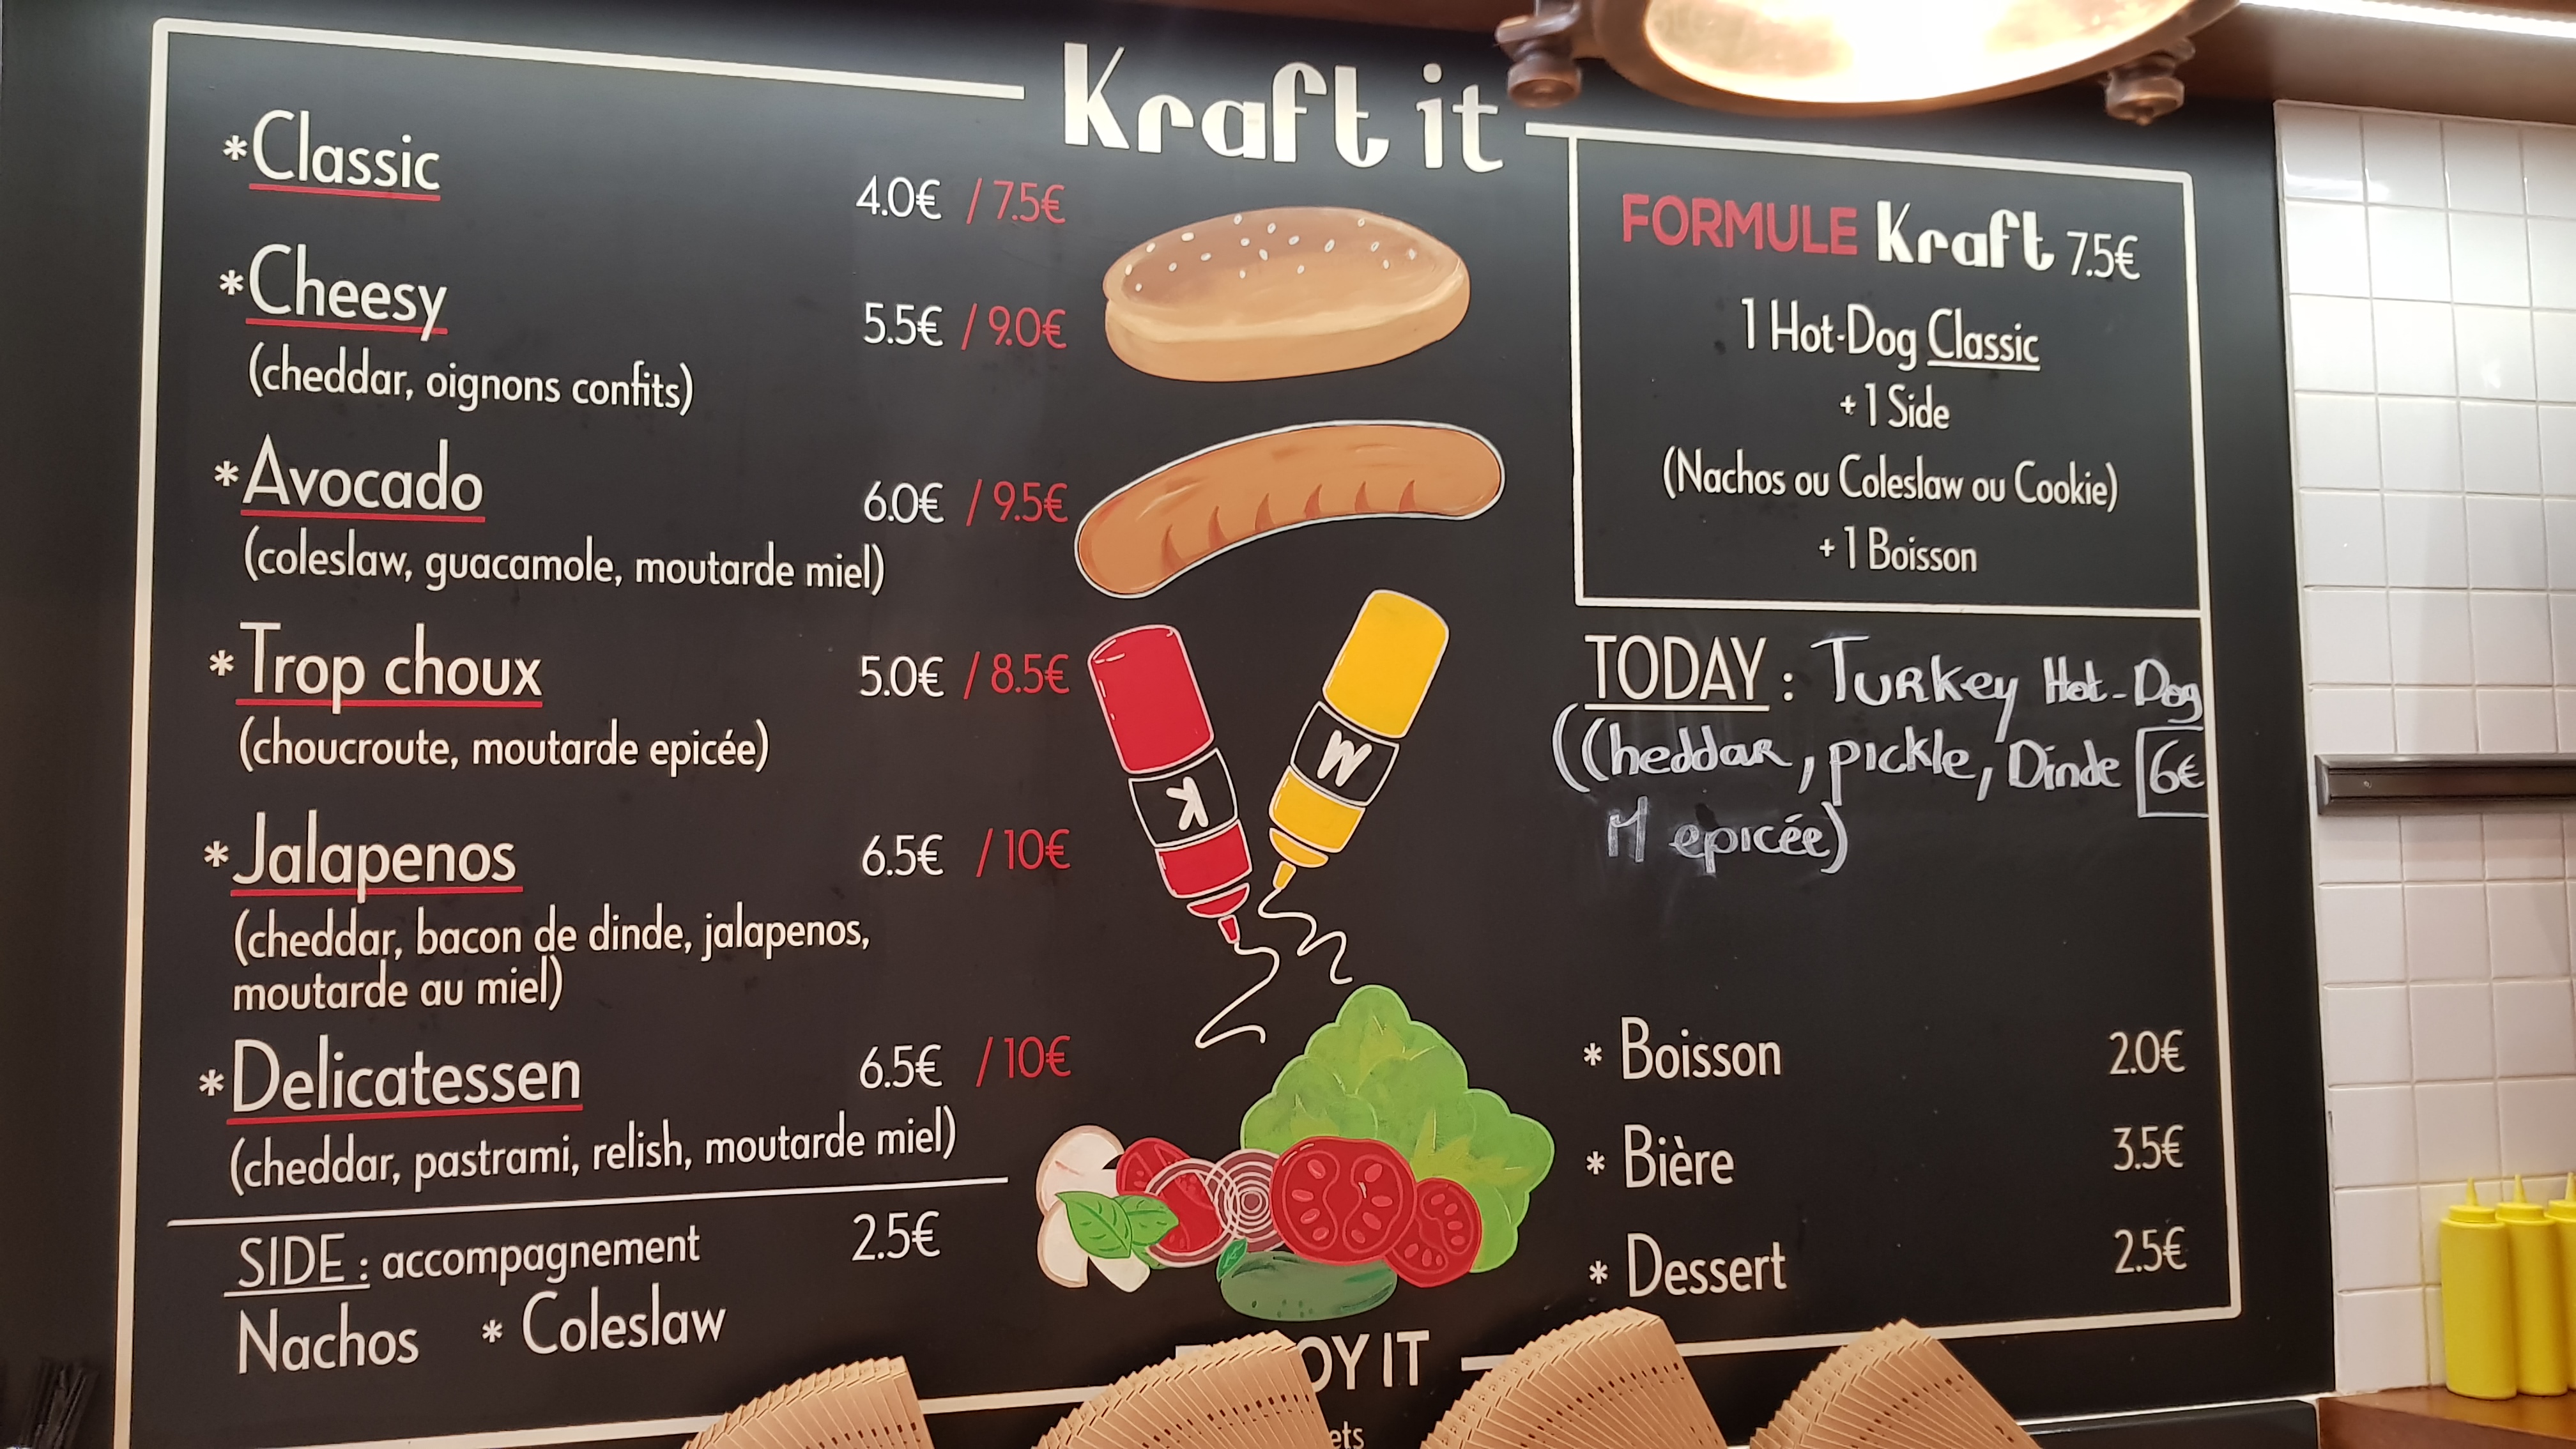 Kraft it
*Classic 4.0€ / 7.5€
*Cheesy 5.5€ / 9.0€
(cheddar, oignons confits)
*Avocado 6.0€ / 9.5€
(coleslaw, guacamole, moutarde miel)
*Trop choux 5.0€ / 8.5€
(choucroute, moutarde epicée)
*Jalapenos 6.5€ / 10€
(cheddar, bacon de dinde, jalapenos,
moutarde au miel)
*Delicatessen 6.5€ / 10€
(cheddar, pastrami, relish, moutarde miel)
SIDE : accompagnement 2.5€
Nachos * Coleslaw
K
M
FORMULE Kraft 7.5€
1 Hot-Dog Classic
+ 1 Side
(Nachos ou Coleslaw ou Cookie)
+ 1 Boisson
TODAY : Turkey Hot-Dog
(Cheddar, pickle, Dinde 6€
M epicée)
* Boisson 2.0€
* Bière 3.5€
* Dessert 2.5€
IT